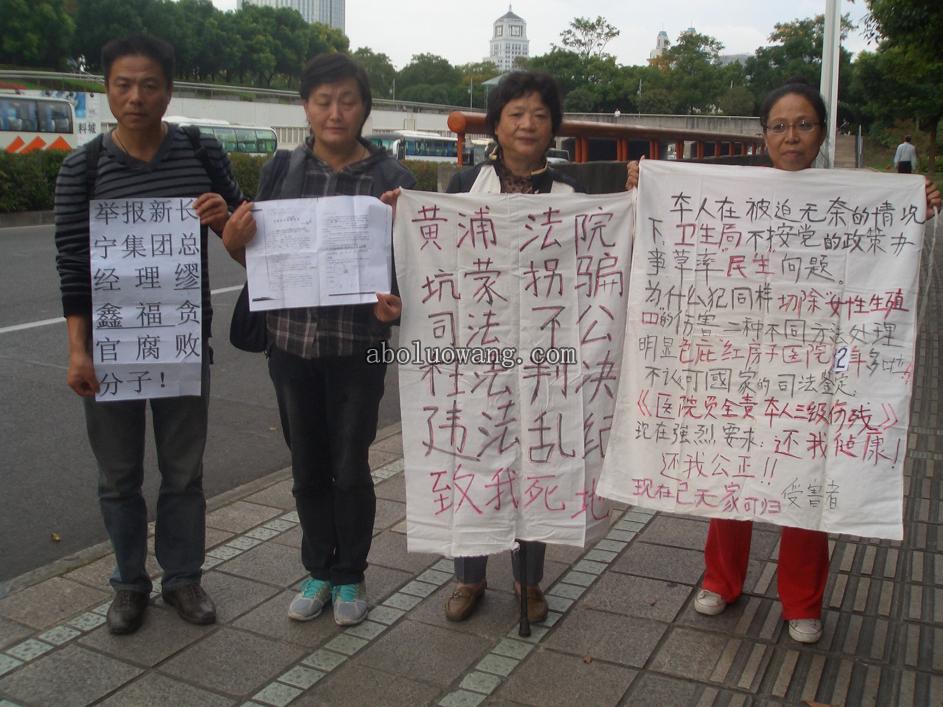 料城
举报新长
宁集团总
经理缪
鑫福贪
官腐败
分子！
黄浦法院
坑蒙拐骗
司法不公
枉法判决
违法乱纪
致我死地
本人在被迫无奈的情况
下.卫生局不按党的政策办
事草率民生问题。
为什么犯同样切除女性生殖
的伤害.二种不同方法处理
明显包庇红房子医院12年多啦
不认可国家的司法鉴定
《医院负全责本人三级伤残》
现在强烈要求：还我健康！
还我公正！！
现在已无家可归 受害者
aboluowang.com